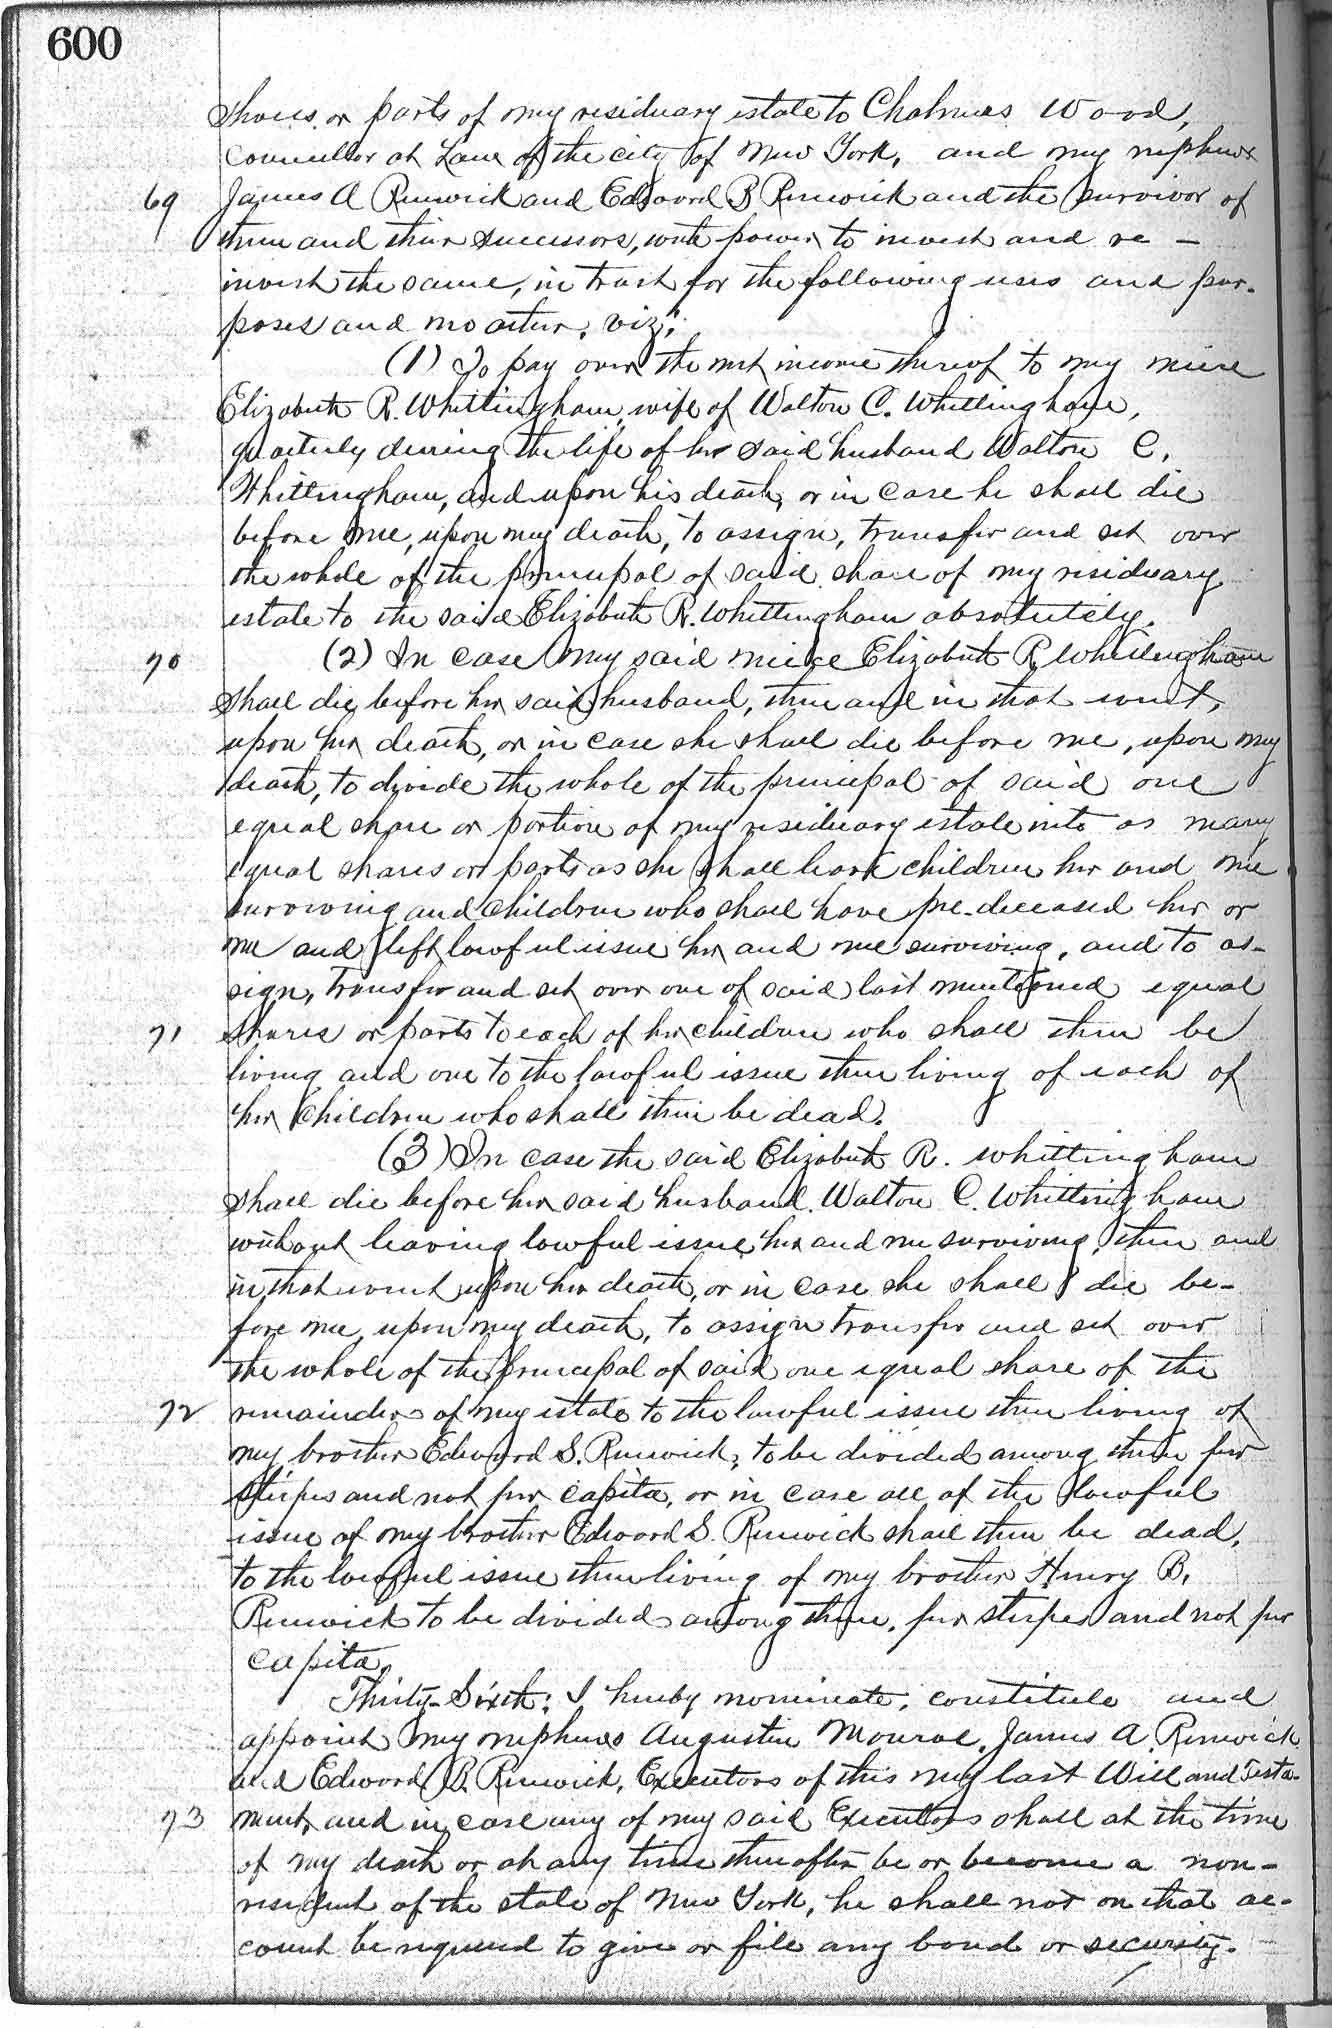 600
shares or parts of my residuary estate to Chalmers Wood,
Councellor at Law of the city of New York, and my nephews
69 James A Renwick and Edward B Renwick and the survivor of
them and their successors, with power to invest and re-
invest the same, in trust for the following uses and pur-
poses and no other, viz;
(1) To pay over the net income thereof to my niece
Elizabeth R. Whittingham, wife of Walton C. Whittingham,
quarterly during the life of her said husband Walton C.
Whittingham, and upon his death, or in case he shall die
before me, upon my death, to assign, transfer and set over
the whole of the principal of said share of my residuary
estate to the said Elizabeth R. Whittingham absolutely.
70 (2) In case my said niece Elizabeth R. Whittingham
shall die before her said husband, then and in that event,
upon her death, or in case she shall die before me, upon my
death, to divide the whole of the principal of said one
equal share or portion of my residuary estate into as many
equal shares or parts as she shall leave children her and me
surviving and children who shall have pre-deceased her or
me and left lawful issue her and me surviving, and to as-
sign, transfer and set over one of said last mentioned equal
71 shares or parts to each of her children who shall then be
living and one to the lawful issue then living of each of
her children who shall then be dead.
(3) In case the said Elizabeth R. Whittingham
shall die before her said husband Walton C. Whittingham
without leaving lawful issue her and me surviving, then and
in that event upon her death, or in case she shall die be-
fore me, upon my death, to assign transfer and set over
the whole of the principal of said one equal share of the
72 remainder of my estate to the lawful issue then living of
my brother Edward S. Renwick, to be divided among them per
stirpes and not per capita, or in case all of the lawful
issue of my brother Edward S. Renwick shall then be dead,
to the lawful issue then living of my brother Henry B.
Renwick to be divided among them, per stirpes and not per
capita.
Thirty-Sixth: I hereby nominate, constitute and
appoint my nephews Augustin Monroe, James A. Renwick
and Edward B. Renwick, Executors of this my last Will and Testa-
73 ment, and in case any of my said Executors shall at the time
of my death or at any time thereafter be or become a non-
resident of the state of New York, he shall not on that ac-
count be required to give or file any bond or security.